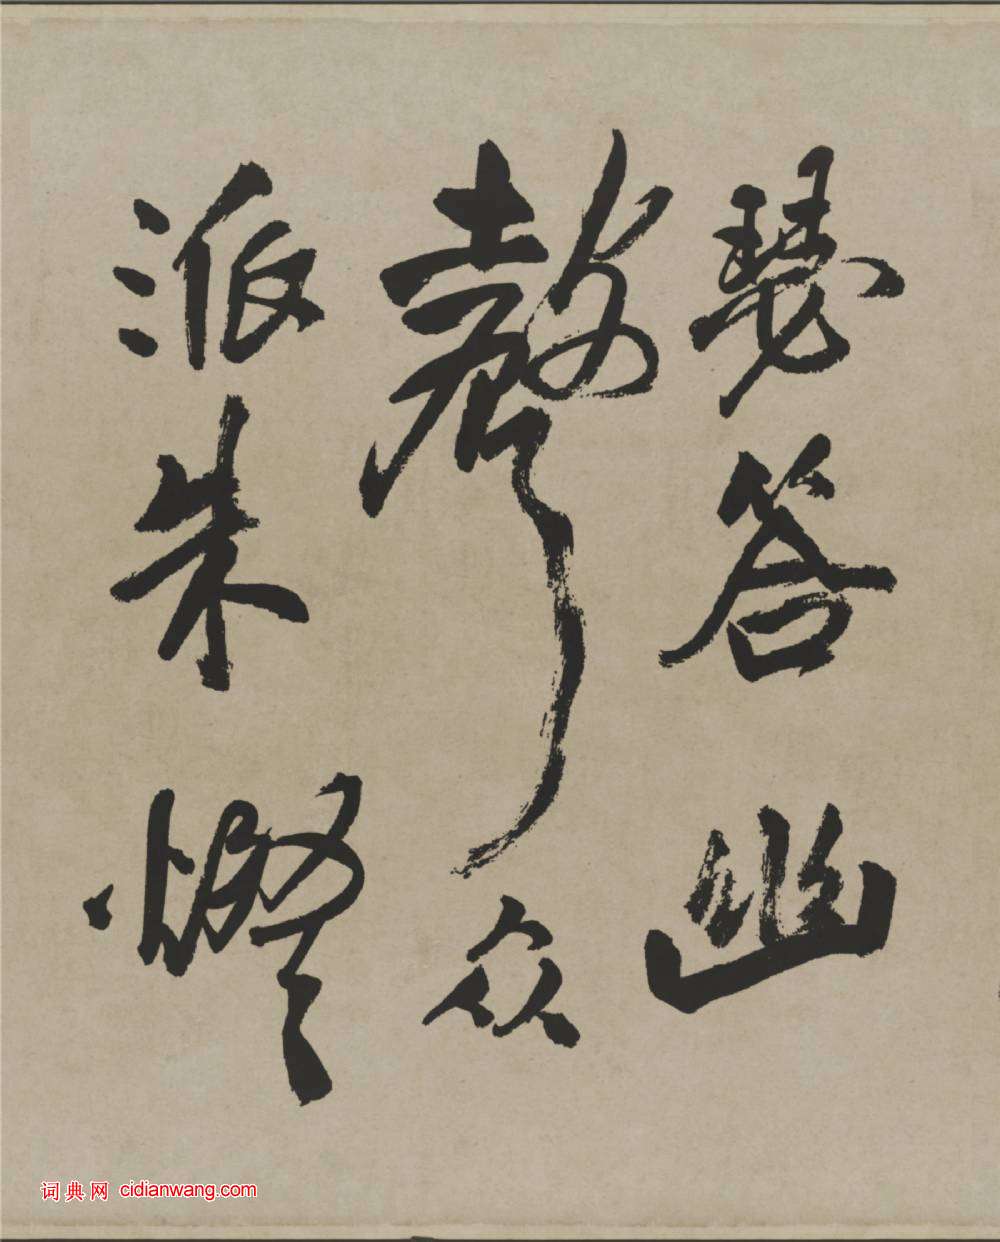 瑟答幽
聲众
派朱燈
词典网 cidianwang.com